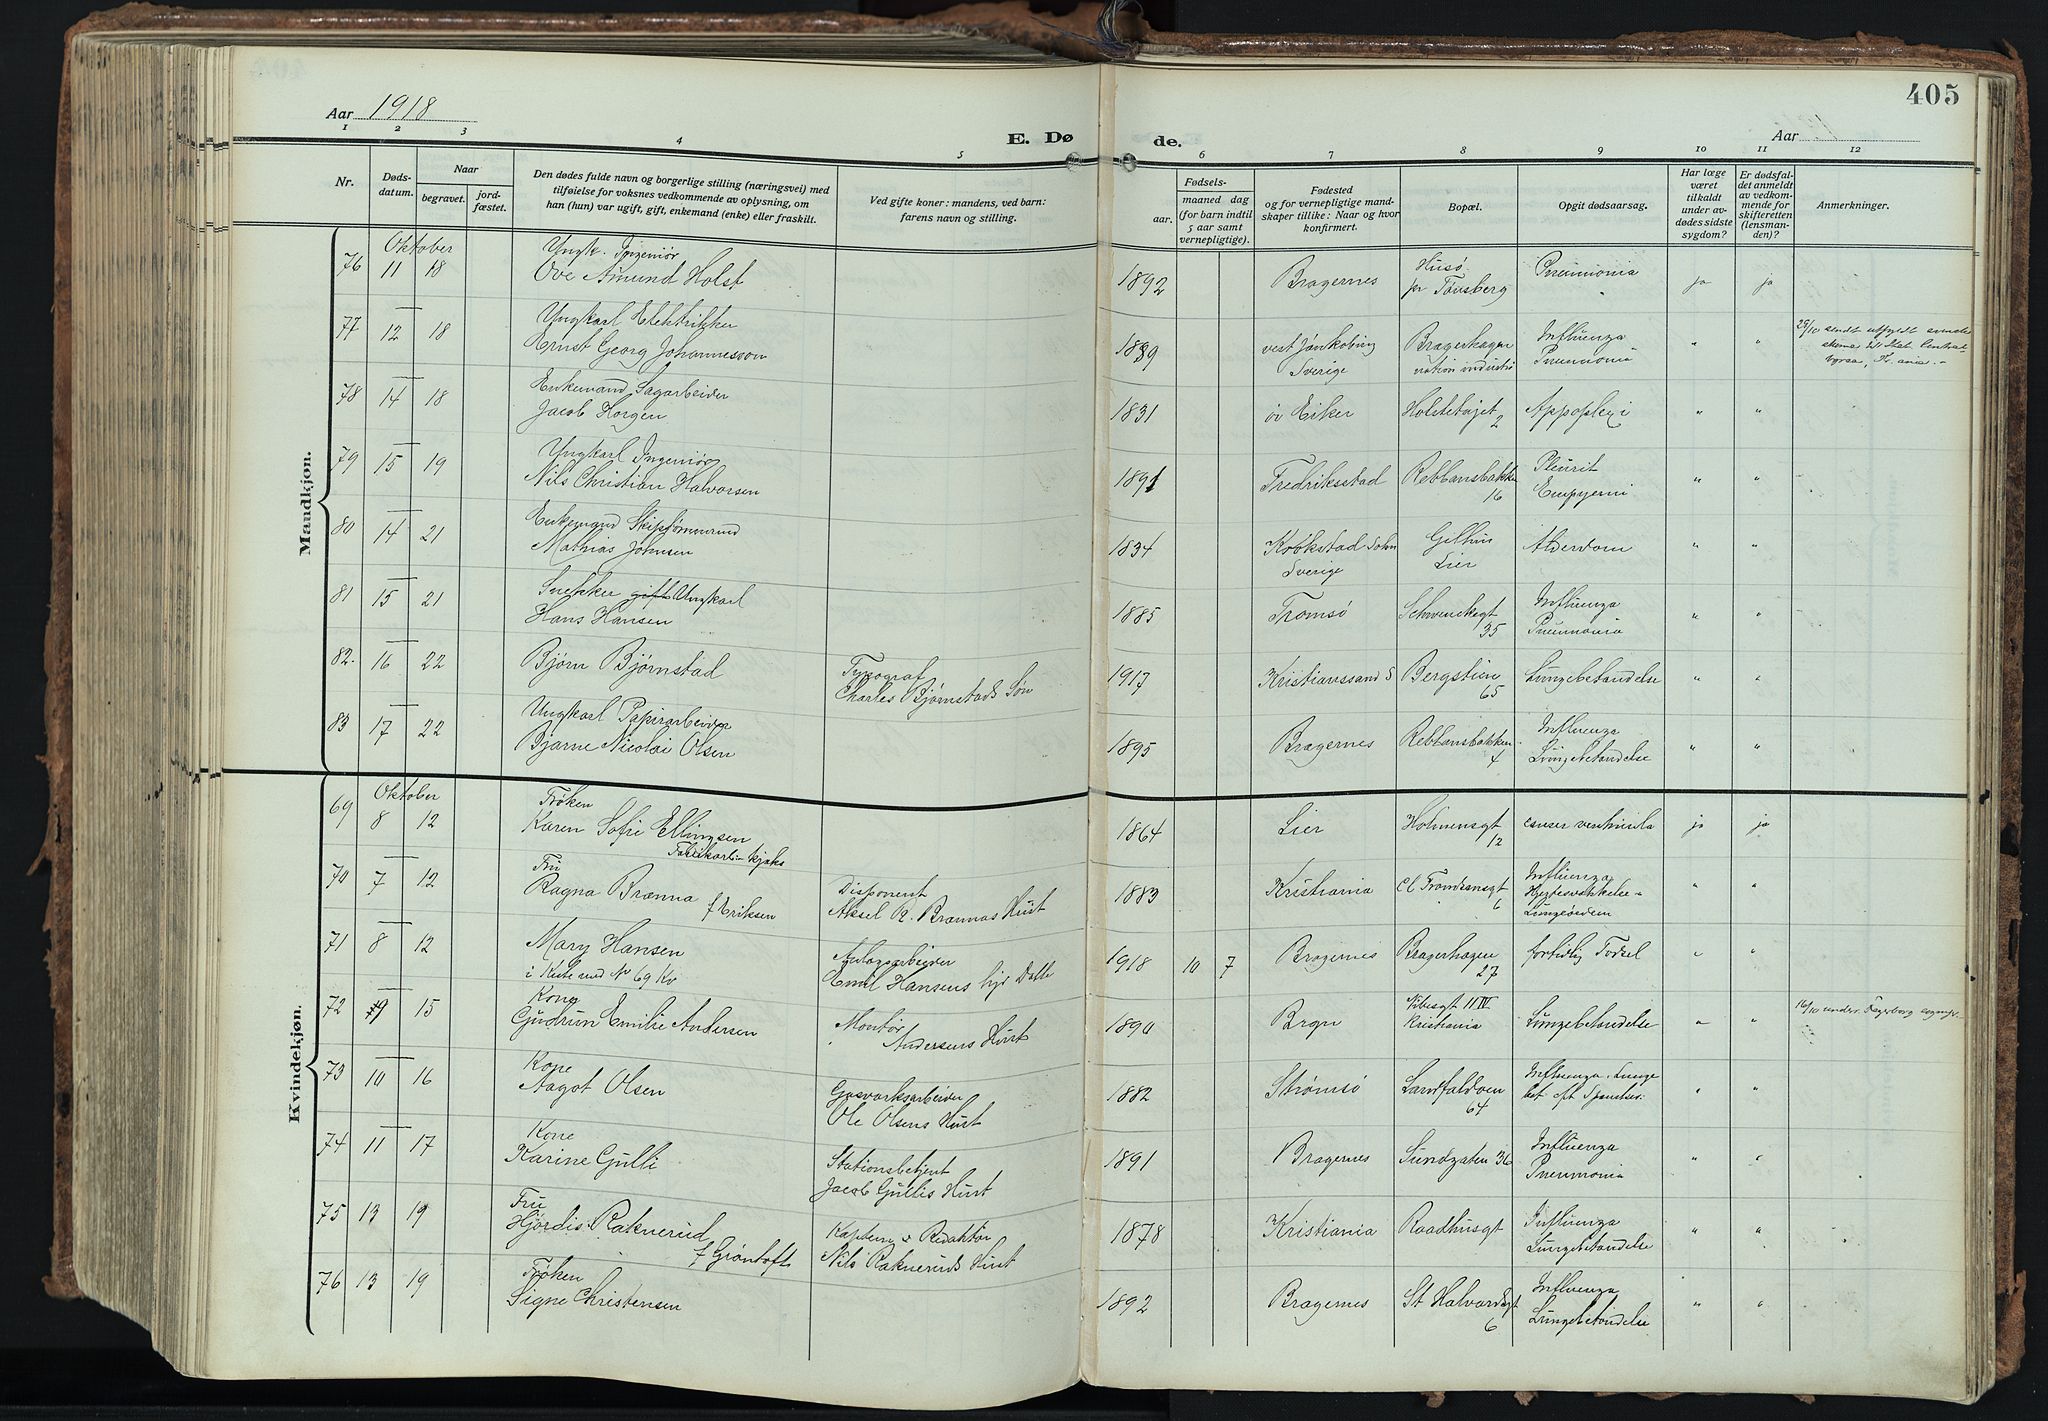 405
Aar 1918
E. Døde.
Aar
1 2 3 4 5 6 7 8 9 10 11 12
Nr.
Døds-
datum.
Naar
begravet.
jord-
fæstet.
Den dødes fulde navn og borgerlige stilling (næringsvei) med
tilføielse for voksnes vedkommende av oplysning, om
han (hun) var ugift, gift, enkemand (enke) eller fraskilt.
Ved gifte koner: mandens, ved barn:
farens navn og stilling.
Fødsels-
aar.
maaned dag
(for barn indtil
5 aar samt
vernepligtige).
Fødested
og for vernepligtige mand-
skaper tillike: Naar og hvor
konfirmert.
Bopæl.
Opgit dødsaarsag.
Har læge
været
tilkaldt
under av-
dødes sidste
sygdom?
Er dødsfal-
det anmeldt
av vedkom-
mende for
skifteretten
(lensman-
den)?
Anmerkninger.
Mandkjøn.
Oktober
76 11 18 Ungk. Ingeniør
Ove Amund Holst
1892 Bragernes Husø
pr Tønsberg Pneumonia ja ja
77 12 18 Ungkarl Elektrikker
Ernst Georg Johannesson
1889 vest Jønkøbing
Sverige Bragerhagen
Influenza
Pneumonia " "
25/10 sendt utfyldt svenske
skema til Stat. Central-
byraa, Kr.ania.
78 14 18 Enkemand Sagarbeider
Jacob Horgen
1831 øv Eiker Holstetøjet
2 Appoplexi " "
79 15 19 Ungkarl Ingeniør
Nils Christian Halvorsen
1891 Fredriksstad Rebbansbakken
16 Pleurit
Empyemi " "
80 14 21 Enkemand Skipsførmand
Mathias Johnsen
1834 Krokstad Sokn
Sverige Gilhus
Lier Alderdom " "
81 15 21 Snekker gift Ungkarl
Hans Hansen
1885 Tromsø Schwenckegt
35 Influenza
Pneumonia " "
82. 16 22 Bjørn Bjørnstad
Typograf
Charles Bjørnstads Søn
1917 Kristianssand S Bergstien
65 Lungebetændelse " "
83 17 22 Ungkarl Papirarbeider
Bjarne Nicolai Olsen
1895 Bragernes Rebbansbakken
4 Influenza
Lungebetændelse " "
Kvindekjøn.
Oktober
69 8 12 Frøken
Karen Sofie Ellingsen
1864 Lier Holmensgt
12 cancer ventriculi ja ja
70 7 12 Fru
Ragna Brænna
f Eriksen
Disponent
Aksel R. Brænnas Hust
1883 Kristiania Cl Trondsensgt
6 Influenza
Hjertesvækkelse
Lungeødem " "
71 8 12 Mary Hansen
i Kiste med No 69 Kv
Anlægsarbeider
Emil Hansens
1918 10 7 Bragernes Bragerhagen
27 fortidlig Fødsel " "
72 9 15 Kone
Gudrun Emilie Andersen
Montør
Andersens Hust
1890 Brgn Vibesgt 11 IV
Kristiania Lungebetændelse " "
16/10 underr. Fagerborg sognepr.
73 10 16 Kone
Aagot Olsen
Gasverksarbeider
Ole Olsens Hust
1882 Strømsø Landfaldøen
64 Influenza. Lunge
bet eft Spansksy. " "
74 11 17 Kone
Karine Gulli
Stationsbetjent
Jacob Gullis Hust
1891 Bragernes Sundgaten 36 Influenza
Pneumonia " "
75 13 19 Fru
Hjørdis Raknerud
f Grøntoft
Kaptein & Redaktør
Nils Rakneruds Hust
1878 Kristiania Raadhusgt Influenza
Lungebetændelse " "
76 13 19 Frøken
Signe Christensen
1892 Bragernes St Halvardsgt
6 Influenza
Lungebetændelse " "